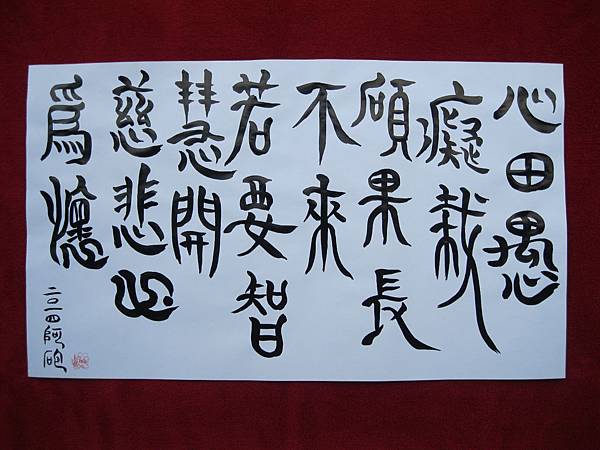 心田愚
癡栽
碩果長
不來
若要智
慧開
慈悲心
爲懷
二〇一四阿砲